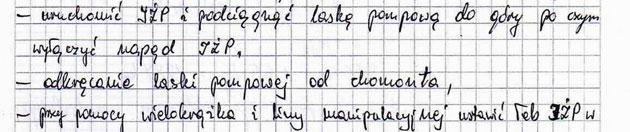 - uruchomić IŻP i podciągnąć laskę pompową do góry po czym
wyłączyć napęd IŻP,
- odkręcanie laski pompowej od chomonta,
- przy pomocy wielokrążka i liny manipulacyjnej ustawić łeb IŻP w